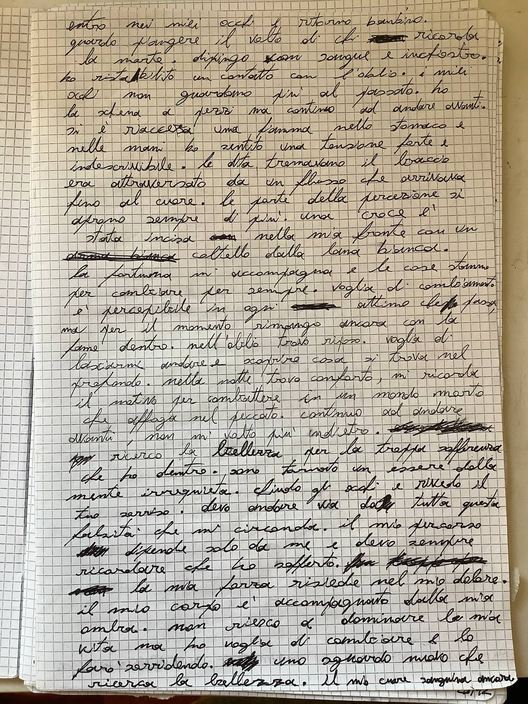 entro nei miei occhi e ritorno bambino.
guardo piangere il volto di chi ricorda
la morte. dipingo con sangue e inchiostro.
ho ristabilito un contatto con l'oblio. i miei
occhi non guardano più al passato. ho
la schiena a pezzi ma continuo ad andare avanti.
si è riaccesa una fiamma nello stomaco e
nelle mani ho sentito una tensione forte e
indescrivibile. le dita tremavano il braccio
era attraversato da un flusso che arrivava
fino al cuore. le porte della percezione si
aprono sempre di più. una croce è
stata incisa nella mia fronte con un
coltello dalla lama bianca.
la fortuna mi accompagna e le cose stanno
per cambiare per sempre. voglia di cambiamento
è percepibile in ogni attimo che passa,
ma per il momento rimango ancora con la
fame dentro. nell'oblio trovo riposo. voglia di
lasciarmi andare e scoprire cosa si trova nel
profondo. nella notte trovo conforto, mi ricorda
il motivo per combattere in un mondo morto
che affoga nel peccato. continuo ad andare
avanti, non mi volto più indietro.
ricerco la bellezza, per la troppa sofferenza
che ho dentro. sono tornato un essere dalla
mente irrequieta. chiudo gli occhi e rivedo il
tuo sorriso. devo andare via da tutta questa
falsità che mi circonda. il mio percorso
dipende solo da me e devo sempre
ricordare che ho sofferto.
la mia forza risiede nel mio dolore.
il mio corpo è accompagnato dalla mia
ombra. non riesco a dominare la mia
vita ma ho voglia di cambiare e lo
farò sorridendo. uno sguardo nuovo che
ricerca la bellezza. il mio cuore sanguina ancora